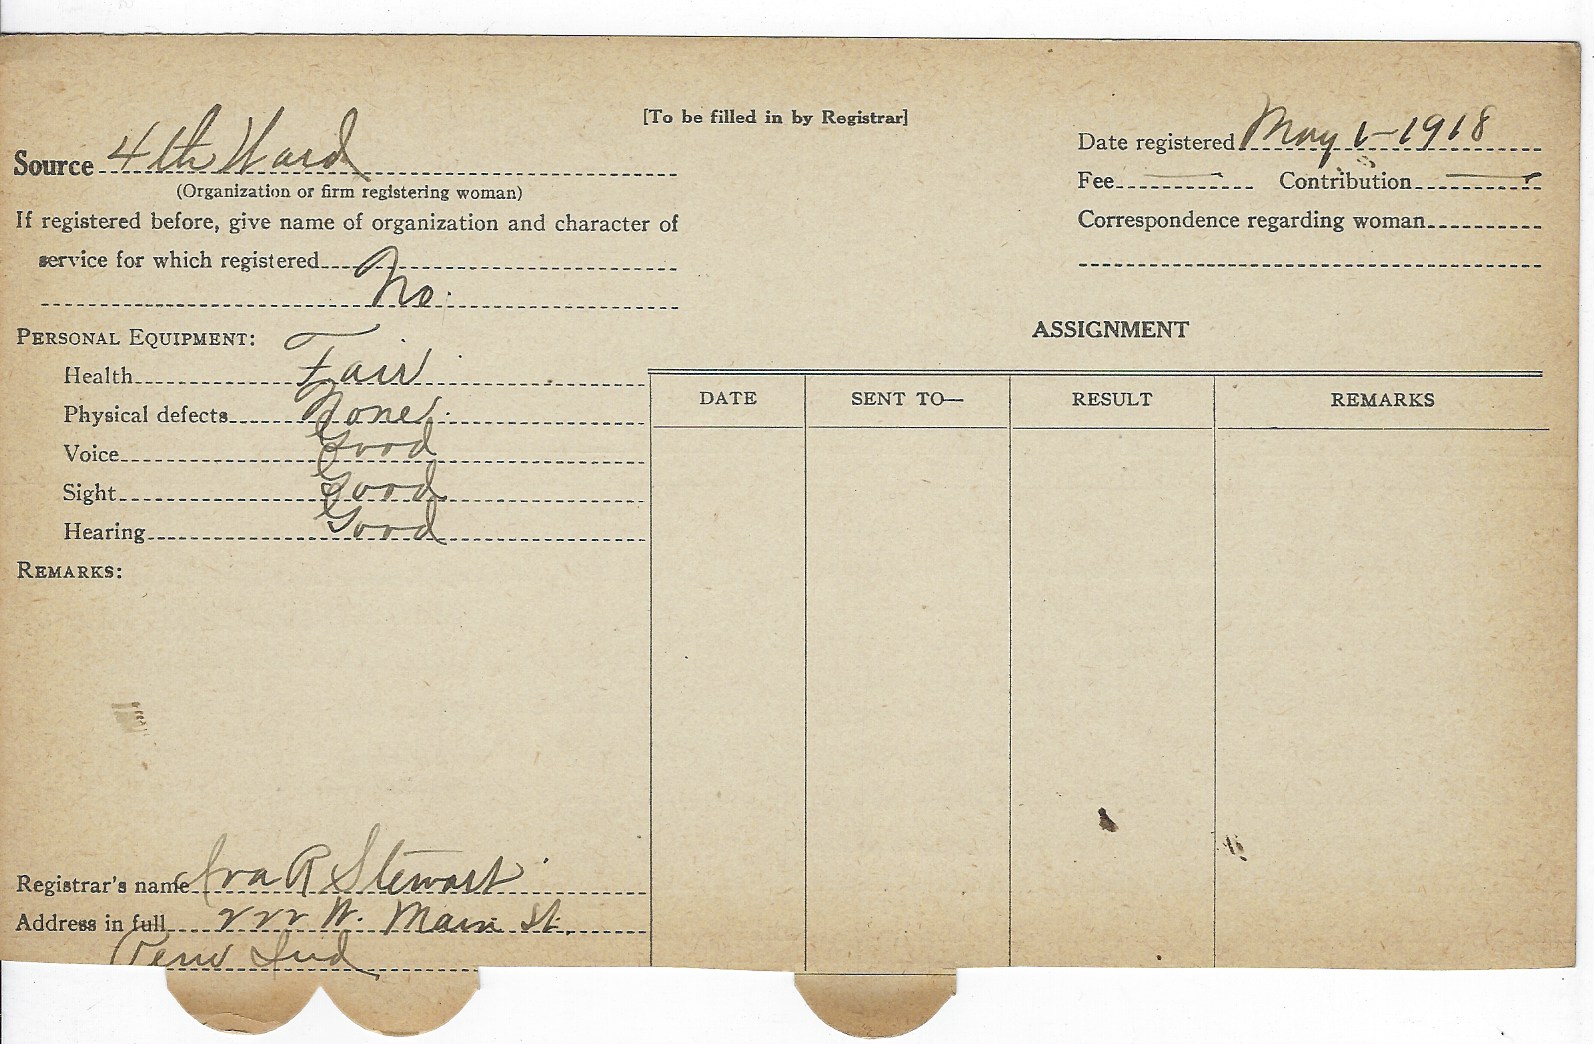 [To be filled in by Registrar]
Source 4th Ward
(Organization or firm registering woman)
If registered before, give name of organization and character of
service for which registered
No.
Date registered May 1-1918
Fee Contribution
Correspondence regarding woman
PERSONAL EQUIPMENT:
Health Fair
Physical defects None.
Voice Good
Sight Good
Hearing Good
REMARKS:
ASSIGNMENT
DATE SENT TO— RESULT REMARKS
Registrar's name Iva R Stewart
Address in full 222 W. Main St.
Peru Ind